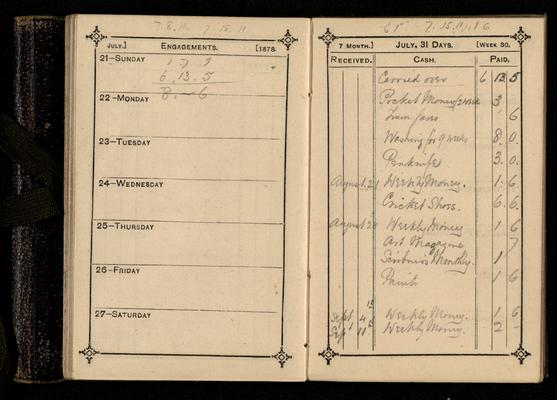 7.8.11. 7.15.11
JULY.] ENGAGEMENTS. [1878.
21—SUNDAY
6.13.5
22—MONDAY 8.—6
23—TUESDAY
24—WEDNESDAY
25—THURSDAY
26—FRIDAY
27—SATURDAY
7.15.11
7 MONTH.] JULY, 31 DAYS. [WEEK 30.
RECEIVED. CASH. PAID.
Carried over 6 13 5
Pocket Money 3
Train fares 6
Washing for 9 weeks 8. 0.
Penknife 3. 0.
August 21 Weekly Money. 1. 6
Cricket Shoes. 6. 6.
August 28 Weekly Money 1 6
Art Magazine 7
Scribner's Monthly. 1
Paints 1 6
Sept 4 Weekly Money. 1 6
Sep 11 Weekly Money. 2 -